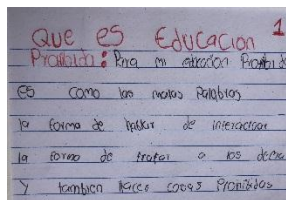 Que es Educacion 1
Prohibida: Para mi educacion Prohibida
es como las malas Palabras
la forma de hablar de interactuar
la forma de tratar a los demas
Y tambien hacer cosas Prohibidas